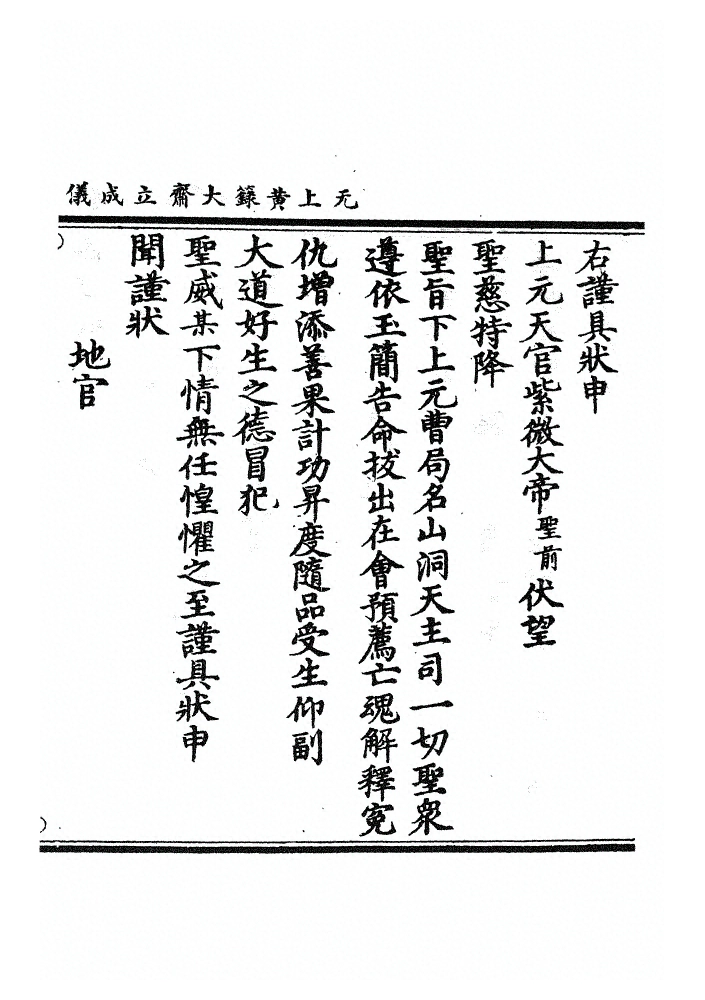 无上黄籙大齋立成儀
右謹具狀申
上元天官紫微大帝聖前伏望
聖慈特降
聖旨下上元曹局名山洞天主司一切聖衆
遵依玉簡告命拔出在會預薦亡魂解釋寃
仇增添善果計功昇度隨品受生仰副
大道好生之德冒犯
聖威某下情無任惶懼之至謹具狀申
聞謹狀
地官